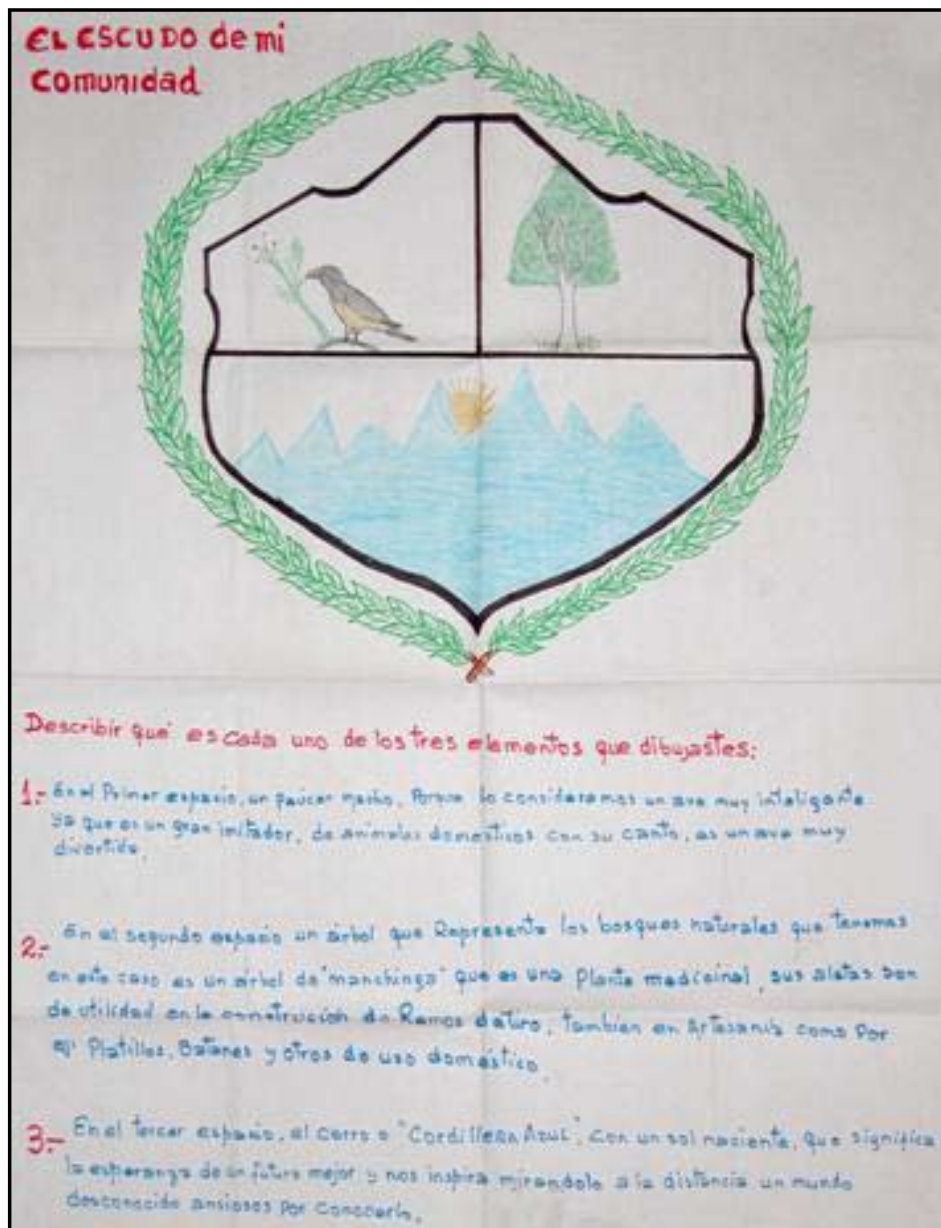 EL ESCUDO de mi
comunidad
Describir qué es cada uno de los tres elementos que dibujastes:
1.- En el Primer espacio, un paucar macho, Porque lo consideramos un ave muy inteligente
ya que es un gran imitador, de animales domesticos con su canto, es un ave muy
divertida.
2.- En el segundo espacio un árbol que Representa los bosques naturales que tenemos
en este caso es un árbol de "manchinga" que es una planta medicinal, sus aletas son
de utilidad en la construcción de Remos, tambien en Artesanía como Por
ej. Platillos, Batanes y otros de uso doméstico.
3.- En el tercer espacio, el cerro o "Cordillera Azul", con un sol naciente, que significa
la esperanza de un futuro mejor y nos inspira mirandolo a la distancia un mundo
desconocido ansiosos Por conocerlo.